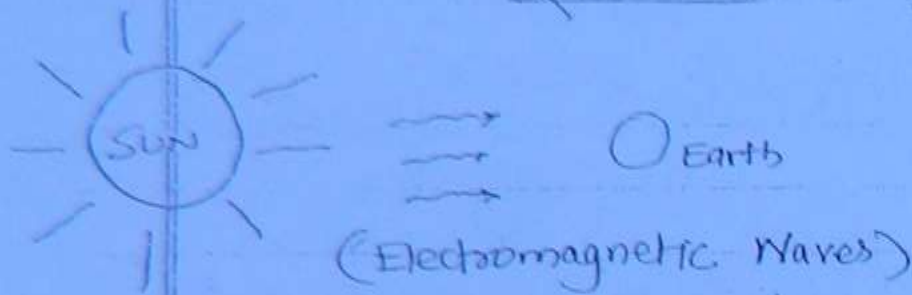 SUN
Earth
(Electromagnetic Waves)